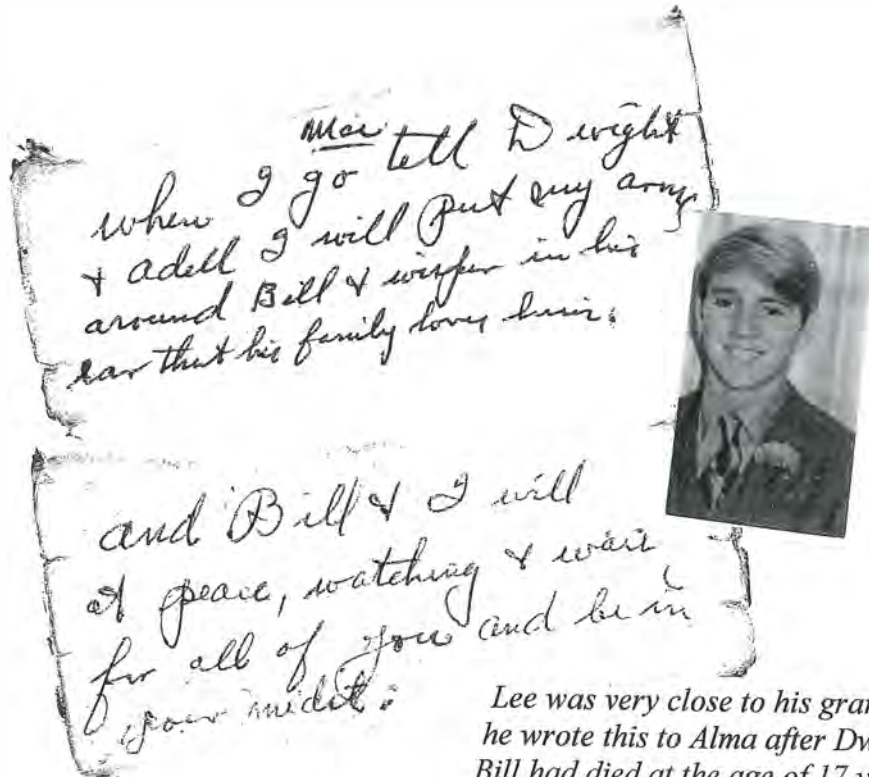 Mae
when I go tell Dwight
& adell I will Put my arms
around Bill & wisper in his
ear that his family loves him.
and Bill & I will
at peace, watching & wait
for all of you and be in
your midst.
Lee was very close to his gran
he wrote this to Alma after Dw
Bill had died at the age of 17 y